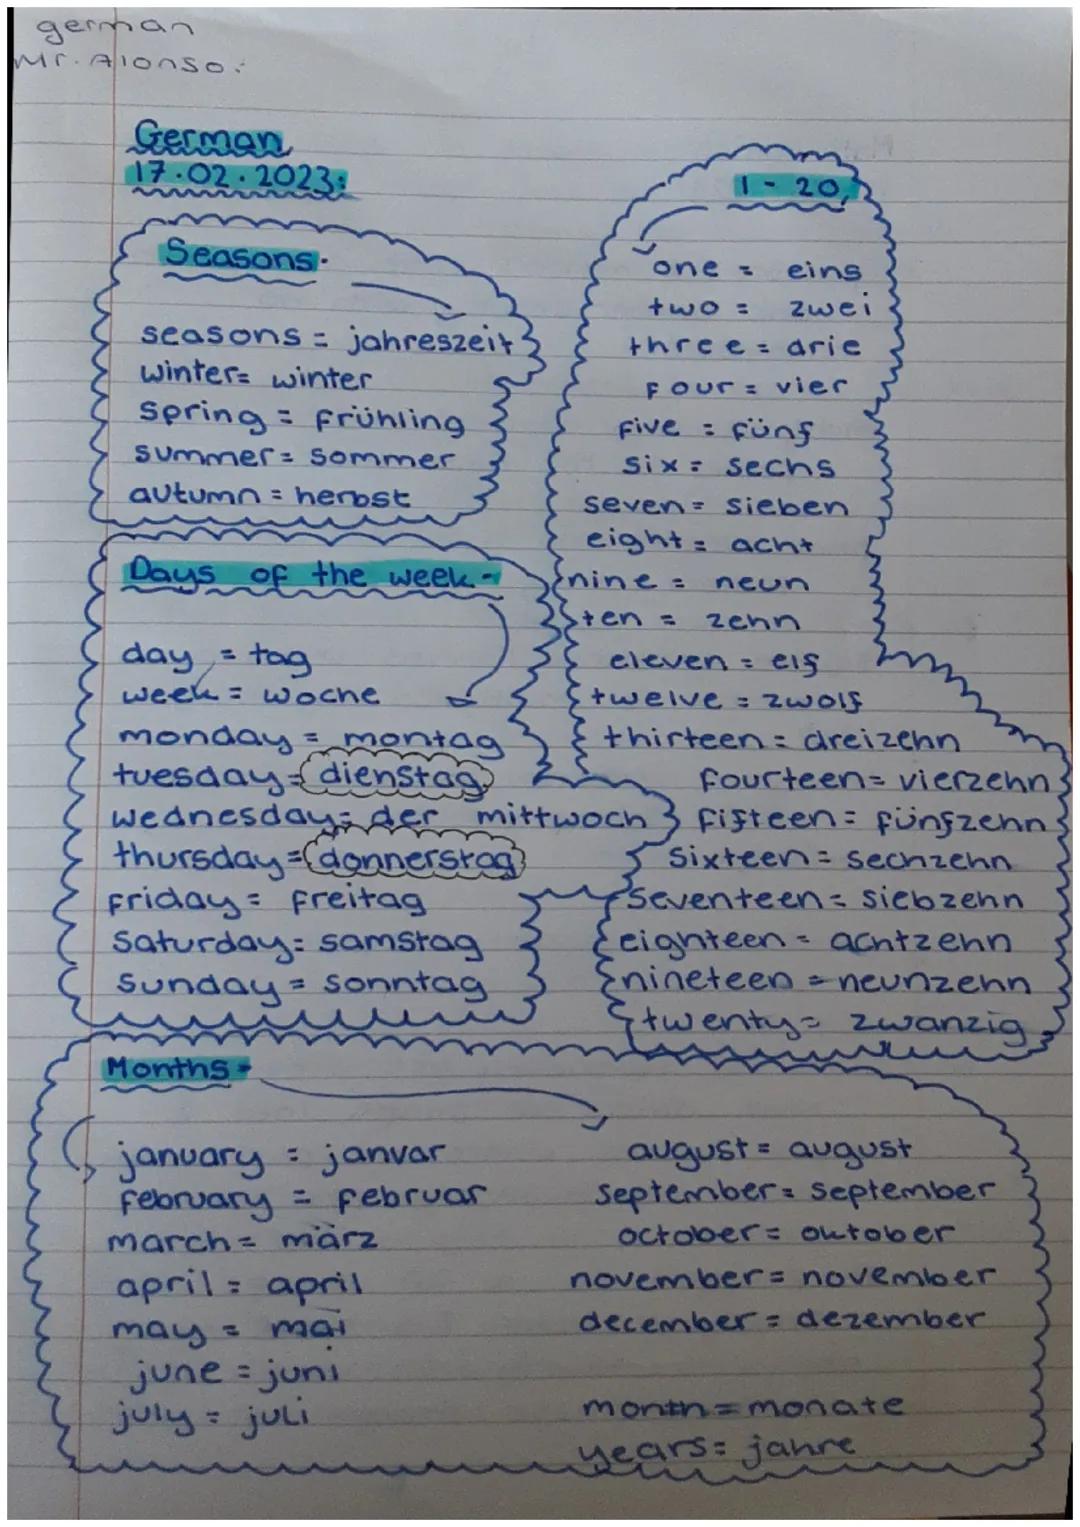 german
Mr. Alonso:
German
17.02.2023:
Seasons.
seasons = jahreszeit
winter= winter
spring = frühling
summer= sommer
autumn = herbst
Days of the week-
day = tag
week = woche
monday = montag
tuesday= dienstag
wednesday= der mittwoch
thursday= donnerstag
friday= freitag
saturday= samstag
sunday = sonntag
1 - 20,
one = eins
two = zwei
three = drie
four = vier
five = fünf
six = sechs
seven = sieben
eight = acht
nine = neun
ten = zehn
eleven = elf
twelve = zwolf
thirteen = dreizehn
fourteen= vierzehn
fifteen = fünfzehn
sixteen = sechzehn
seventeen = siebzehn
eighteen = achtzehn
nineteen = neunzehn
twenty= zwanzig
Months-
january = janvar
february = februar
march = märz
april = april
may = mai
june = juni
july = juli
august = august
september= september
october = oktober
november= november
december = dezember
month = monate
years= jahre